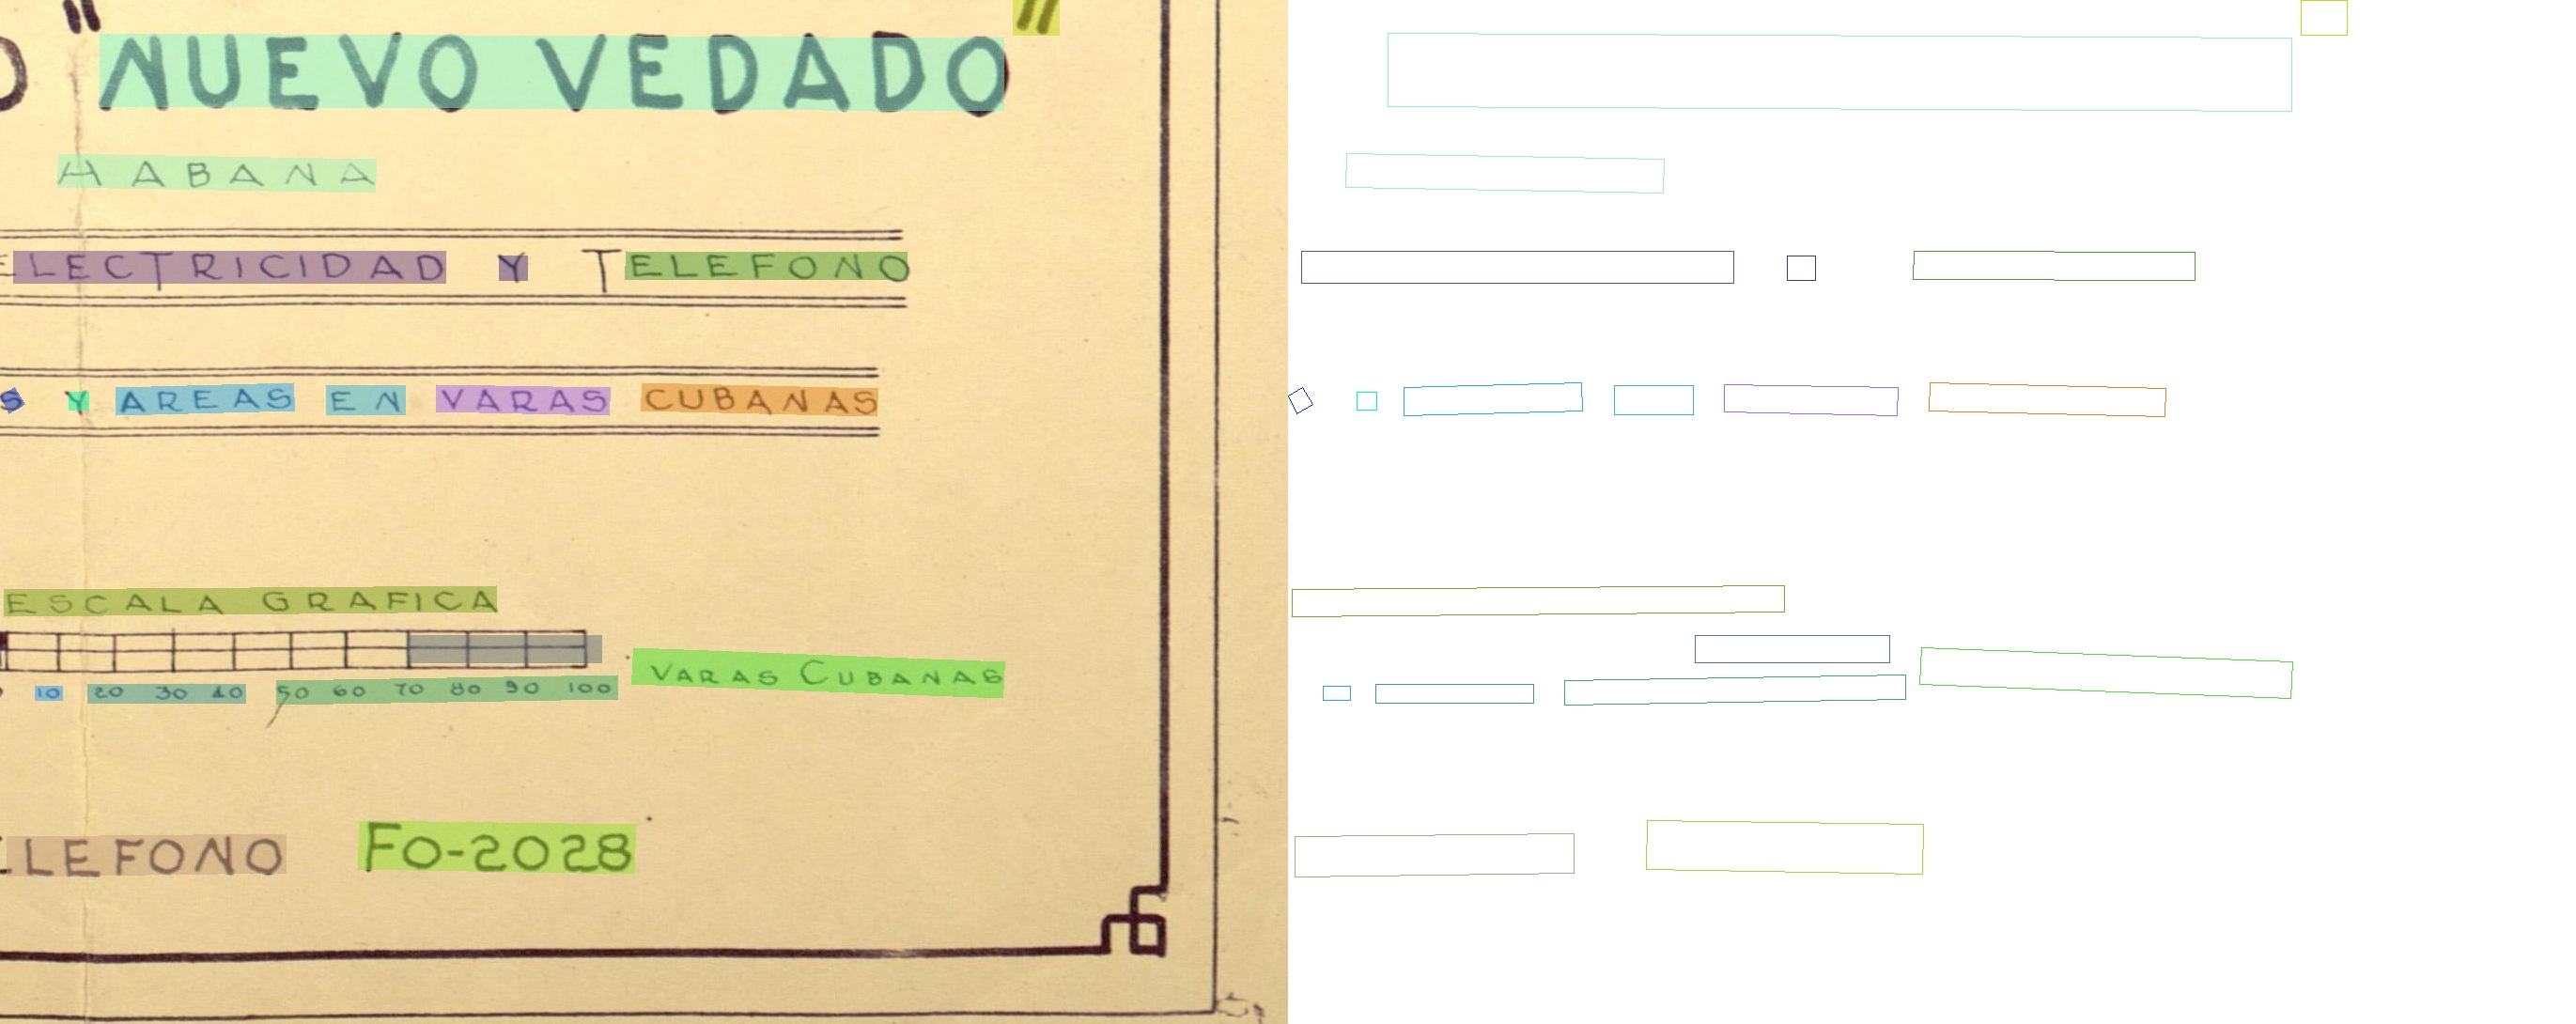 "NUEVO VEDADO"
HABANA
ELECTRICIDAD Y TELEFONO
S Y AREAS EN VARAS CUBANAS
ESCALA GRAFICA
10 20 30 40 50 60 70 80 90 100 VARAS CUBANAS
TELEFONO FO-2028